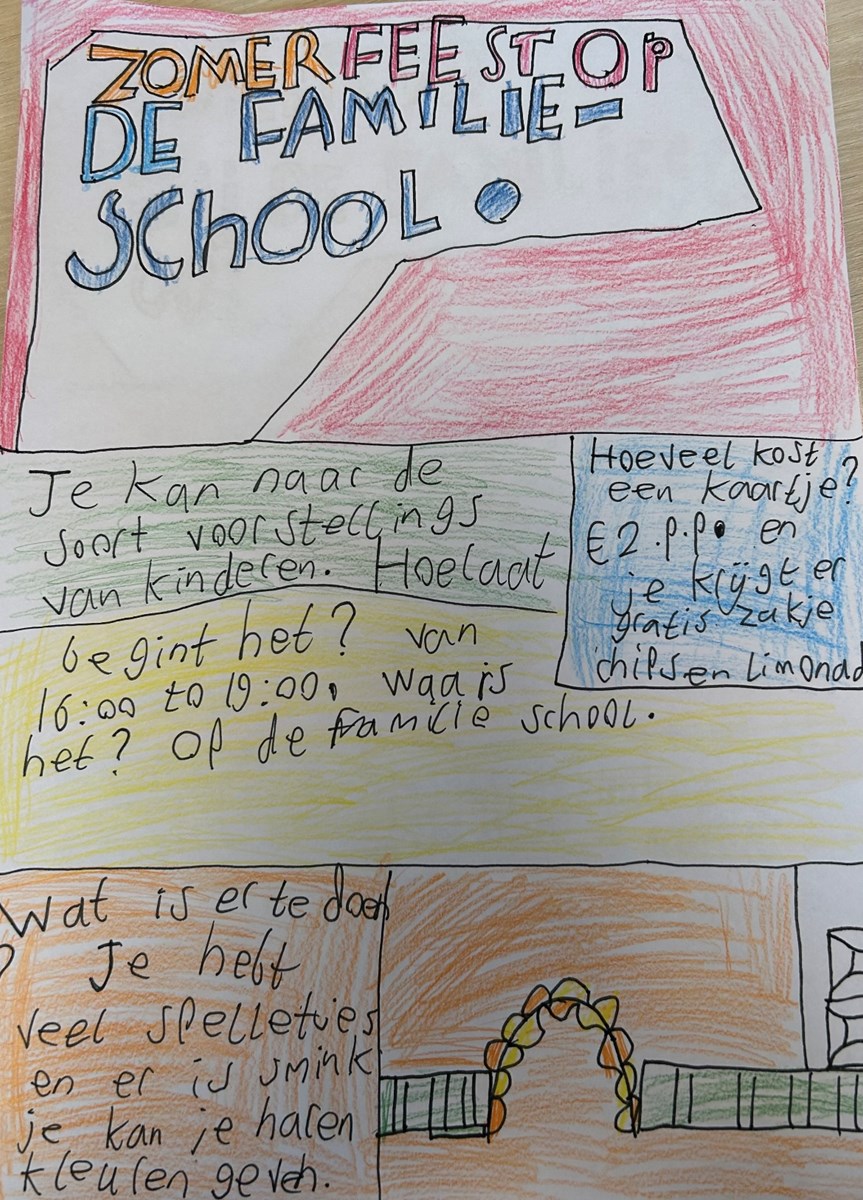 ZOMERFEEST OP
DE FAMILIE-
SCHOOL.
Je kan naar de
soort voorstellings
van kinderen. Hoelaat
begint het? van
16:00 to 19:00, waar is
het? Op de framilie school.
Hoeveel kost
een kaartje?
€2 .p.p. en
je krijgt er
gratis zakje
chips en limonad
Wat is er te doen
? Je heft
veel spelletjes
en er is smink
je kan je haren
kleuren geven.